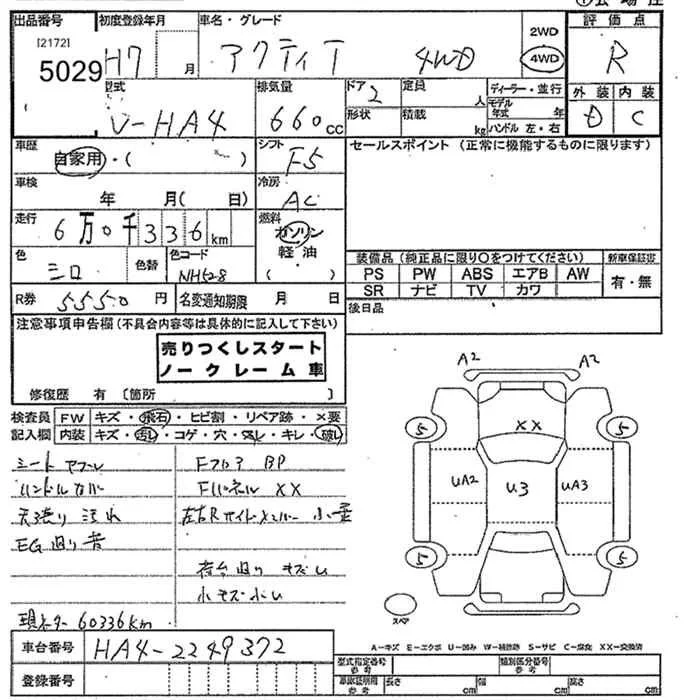 ①会場注
出品番号 初度登録年月 車名・グレード 2WD 評価点
[2172]
5029 H7 月 アクティ T 4WD 4WD R
型式 排気量 ドア 定員 ディーラー・並行 外装 内装
V-HA4 660cc 2 人 モデル年式 年 D C
形状 積載 kg ハンドル 左・右
車歴 自家用・( ) シフト F5 セールスポイント (正常に機能するものに限ります)
車検 年 月( 日) 冷房 AC
走行 6万0千336km 燃料 ガソリン
軽油
( )
色 シロ 色替 色コード NH528
装備品 (純正品に限り○をつけてください) 新車保証書
PS PW ABS エアB AW 有・無
SR ナビ TV カワ
R券 5550円 名変通知期限 月 日 後日品
注意事項申告欄(不具合内容等は具体的に記入して下さい)
売りつくしスタート
ノークレーム車
修復歴 有 〔箇所 〕
検査員 FW キズ・飛石・ヒビ割・リペア跡・×要
記入欄 内装 キズ・汚れ・コゲ・穴・スレ・キレ・破れ
シート ヤブレ Fフロア BP
ハンドル Fパネル XX
天張り 汚れ 左右Rサイドメンバー 小歪
EG廻り 音
荷台廻り キズ凹
小キズ小凹
現メーター 60336km
A2 A2
5 XX 5
UA2 U3 UA3
5 5
スペア
A-キズ E-エクボ U-凹み W-補修跡 S-サビ C-腐食 XX-交換済
車台番号 HA4-2249372
登録番号
型式指定番号 参考 類別区分番号 参考
車庫証明用 参考 長さ cm 幅 cm 高さ cm